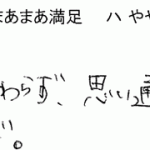 まあまあ満足 ハ やや
わらず、思い通
。